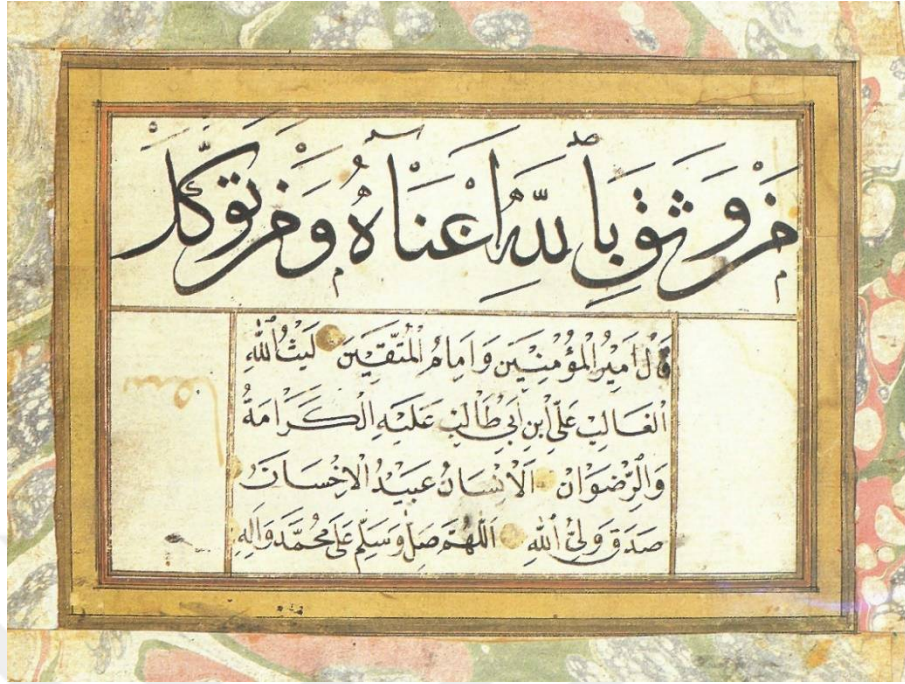 مَنْ وَثِقَ بِاللّٰهِ اَغْنَاهُ وَمَنْ تَوَكَّلَ
قَالَ اَمِيرُ الْمُؤْمِنِينَ وَاِمَامُ الْمُتَّقِينَ لَيْثُ اللّٰهِ
الْغَالِبِ عَلِيِّ ابْنِ اَبِي طَالِبٍ عَلَيْهِ الْكَرَامَةُ
وَالرِّضْوَانُ اَلْاِنْسَانُ عَبِيدُ الْاِحْسَانِ
صَدَقَ وَلِيُّ اللّٰهِ اَللّٰهُمَّ صَلِّ وَسَلِّمْ عَلَى مُحَمَّدٍ وَاٰلِهِ